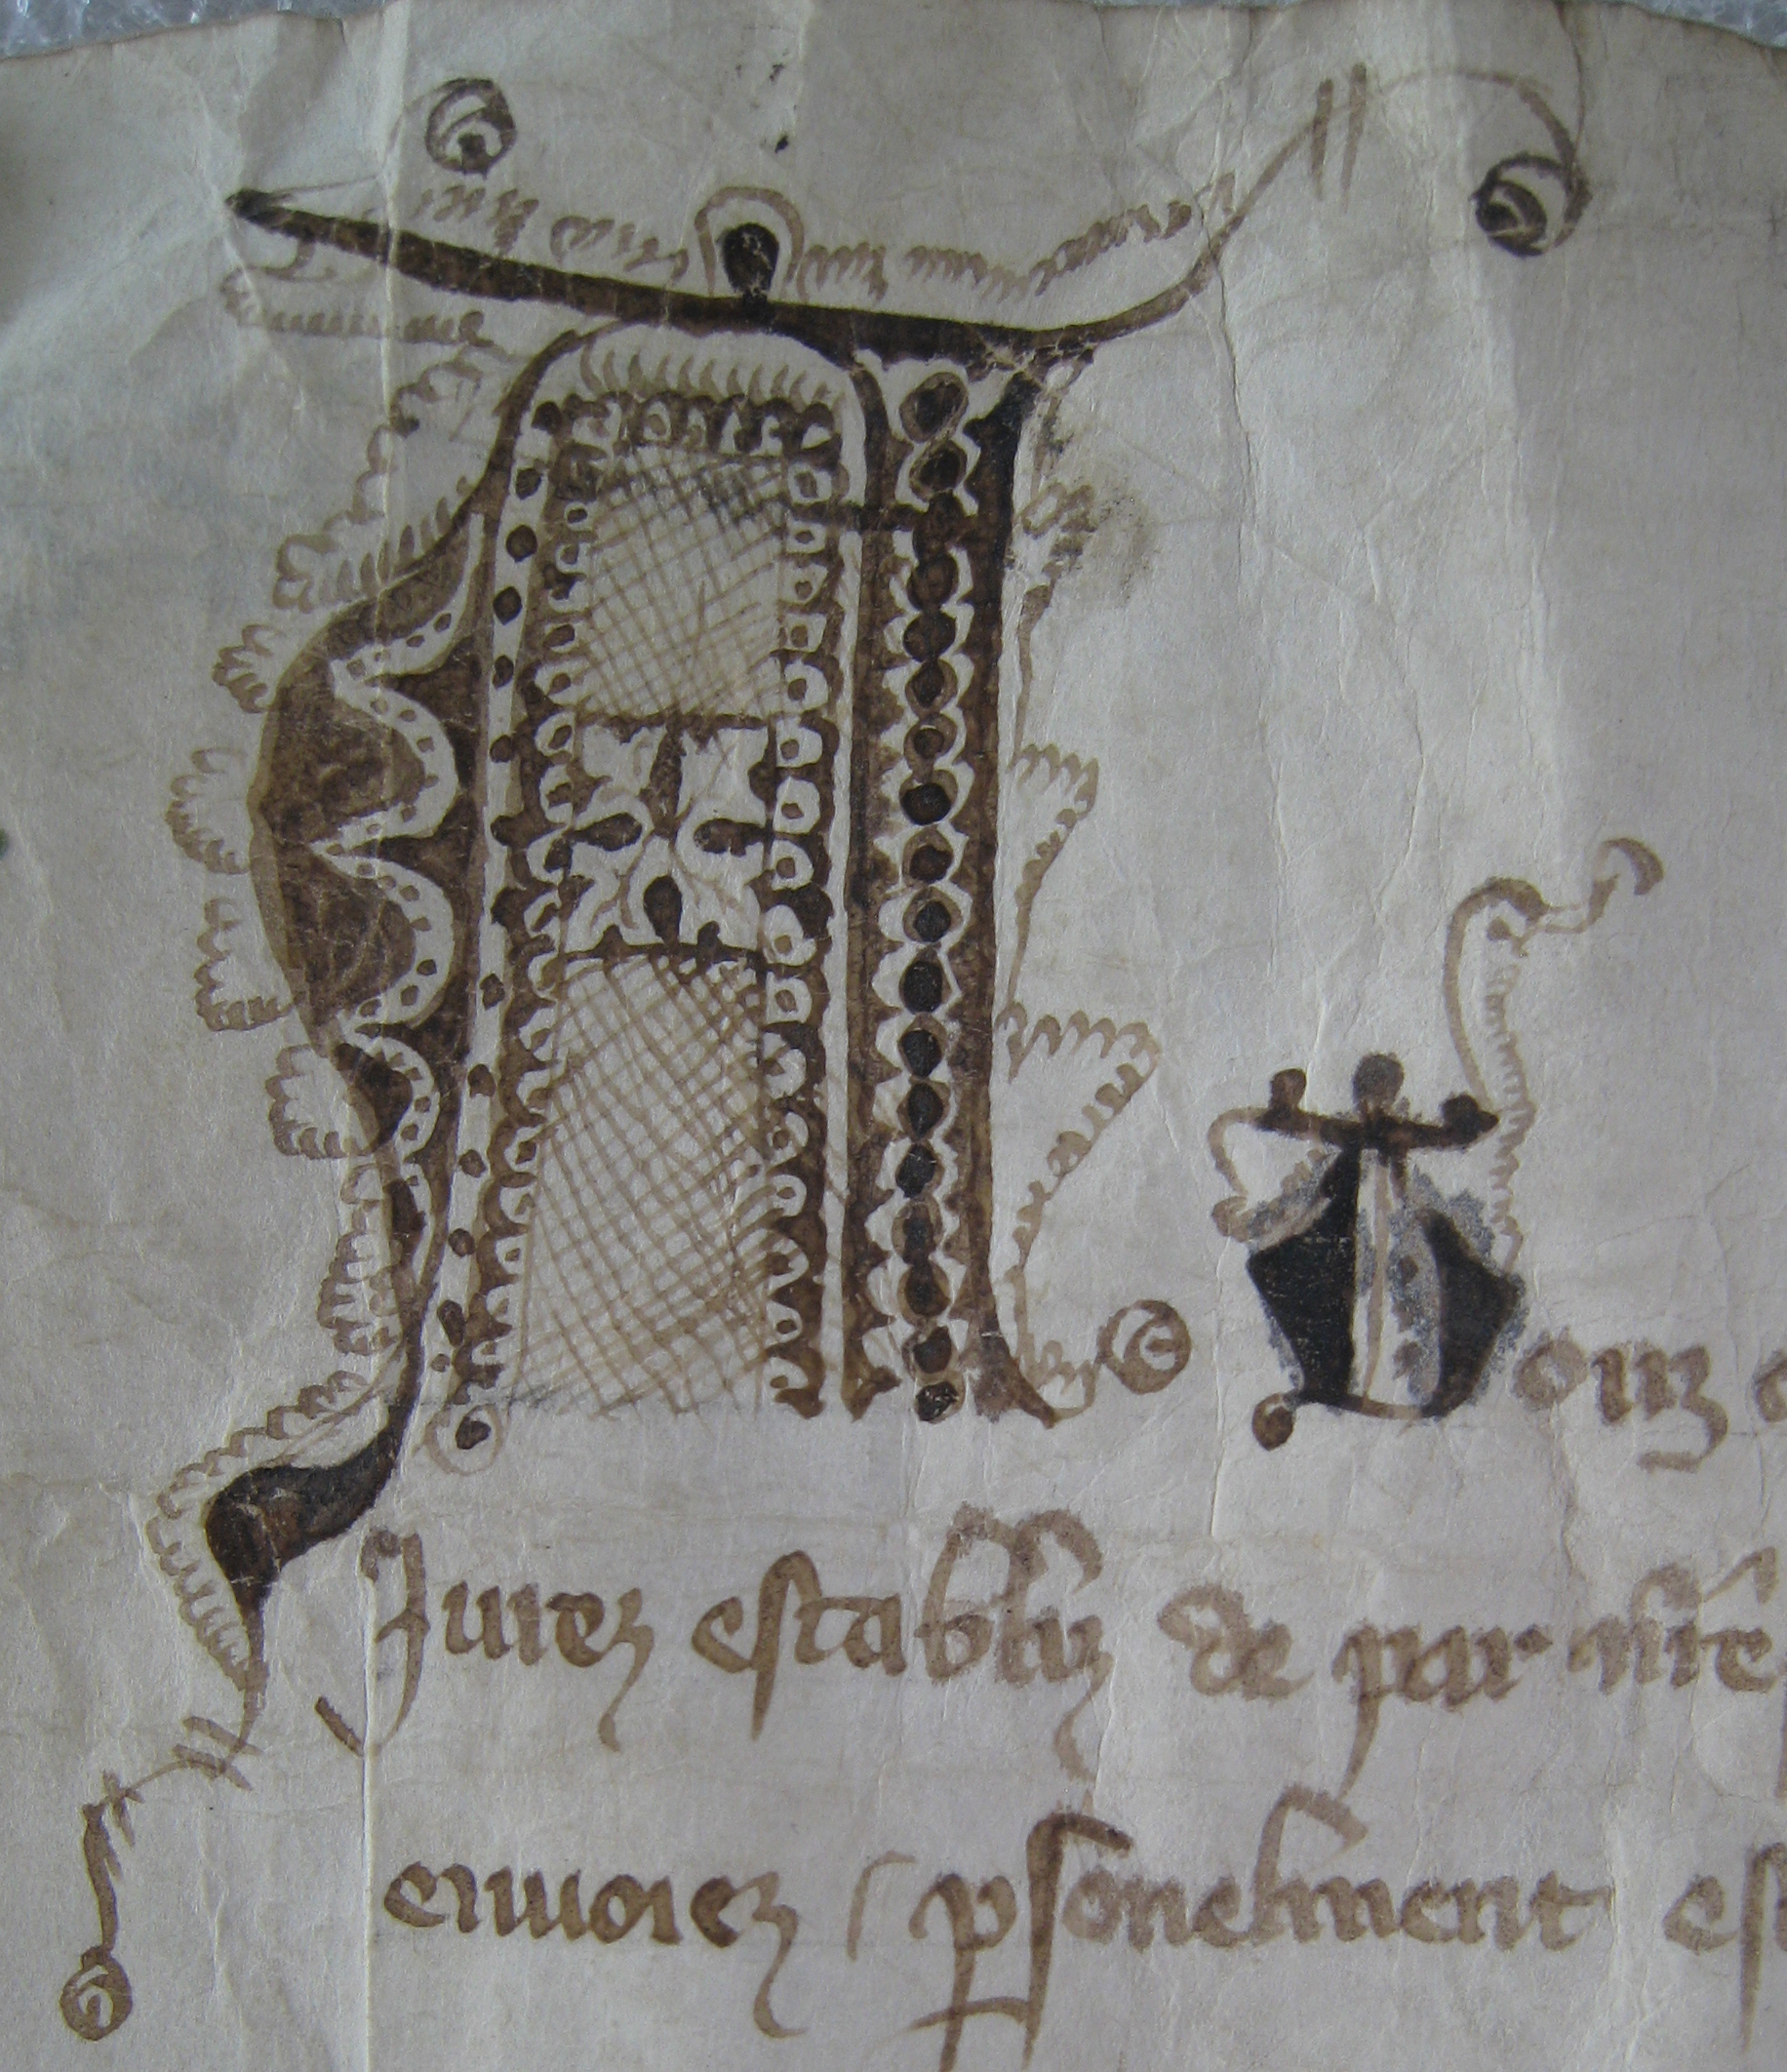 A Touz
Juiez establiz de par nr̃e
enuoiez / ꝑsonelment es